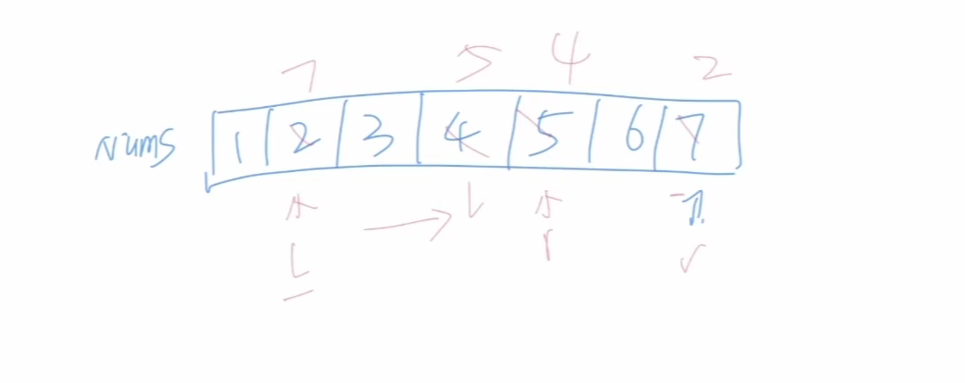 7 5 4 2
nums 1 2 3 4 5 6 7
L r
L r